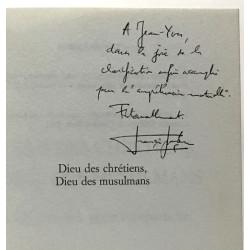 À Jean-Yves,
dans la joie de la
clarification enfin accomplie
par l'
Fraternellement.
Dieu des chrétiens,
Dieu des musulmans